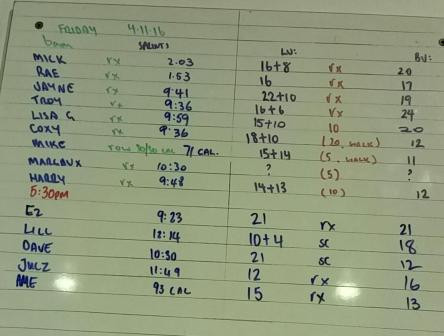 FRIDAY 4.11.16
SPRINTS LU: BU:
MICK rx 2.03 16+8 rx 20
RAE rx 1.53 16 rx 17
JAYNE rx 9:41 22+10 rx 19
TROY rx 9:36 16+6 rx 24
LISA G rx 9:59 15+10 10 20
COXY rx 9:36 18+10 (20, WALK) 12
MIKE ROW 30/30 CAL 71 CAL. 15+14 (5, WALK) 11
MARLAUX rx 10:30 ? (5) ?
HARRY rx 9:48 14+13 (10) 12
5:30PM
EZ 9:23 21 rx 21
LILL 12:14 10+4 sc 18
DAVE 10:50 21 sc 12
JULZ 11:49 12 rx 16
AME 93 CAL 15 rx 13